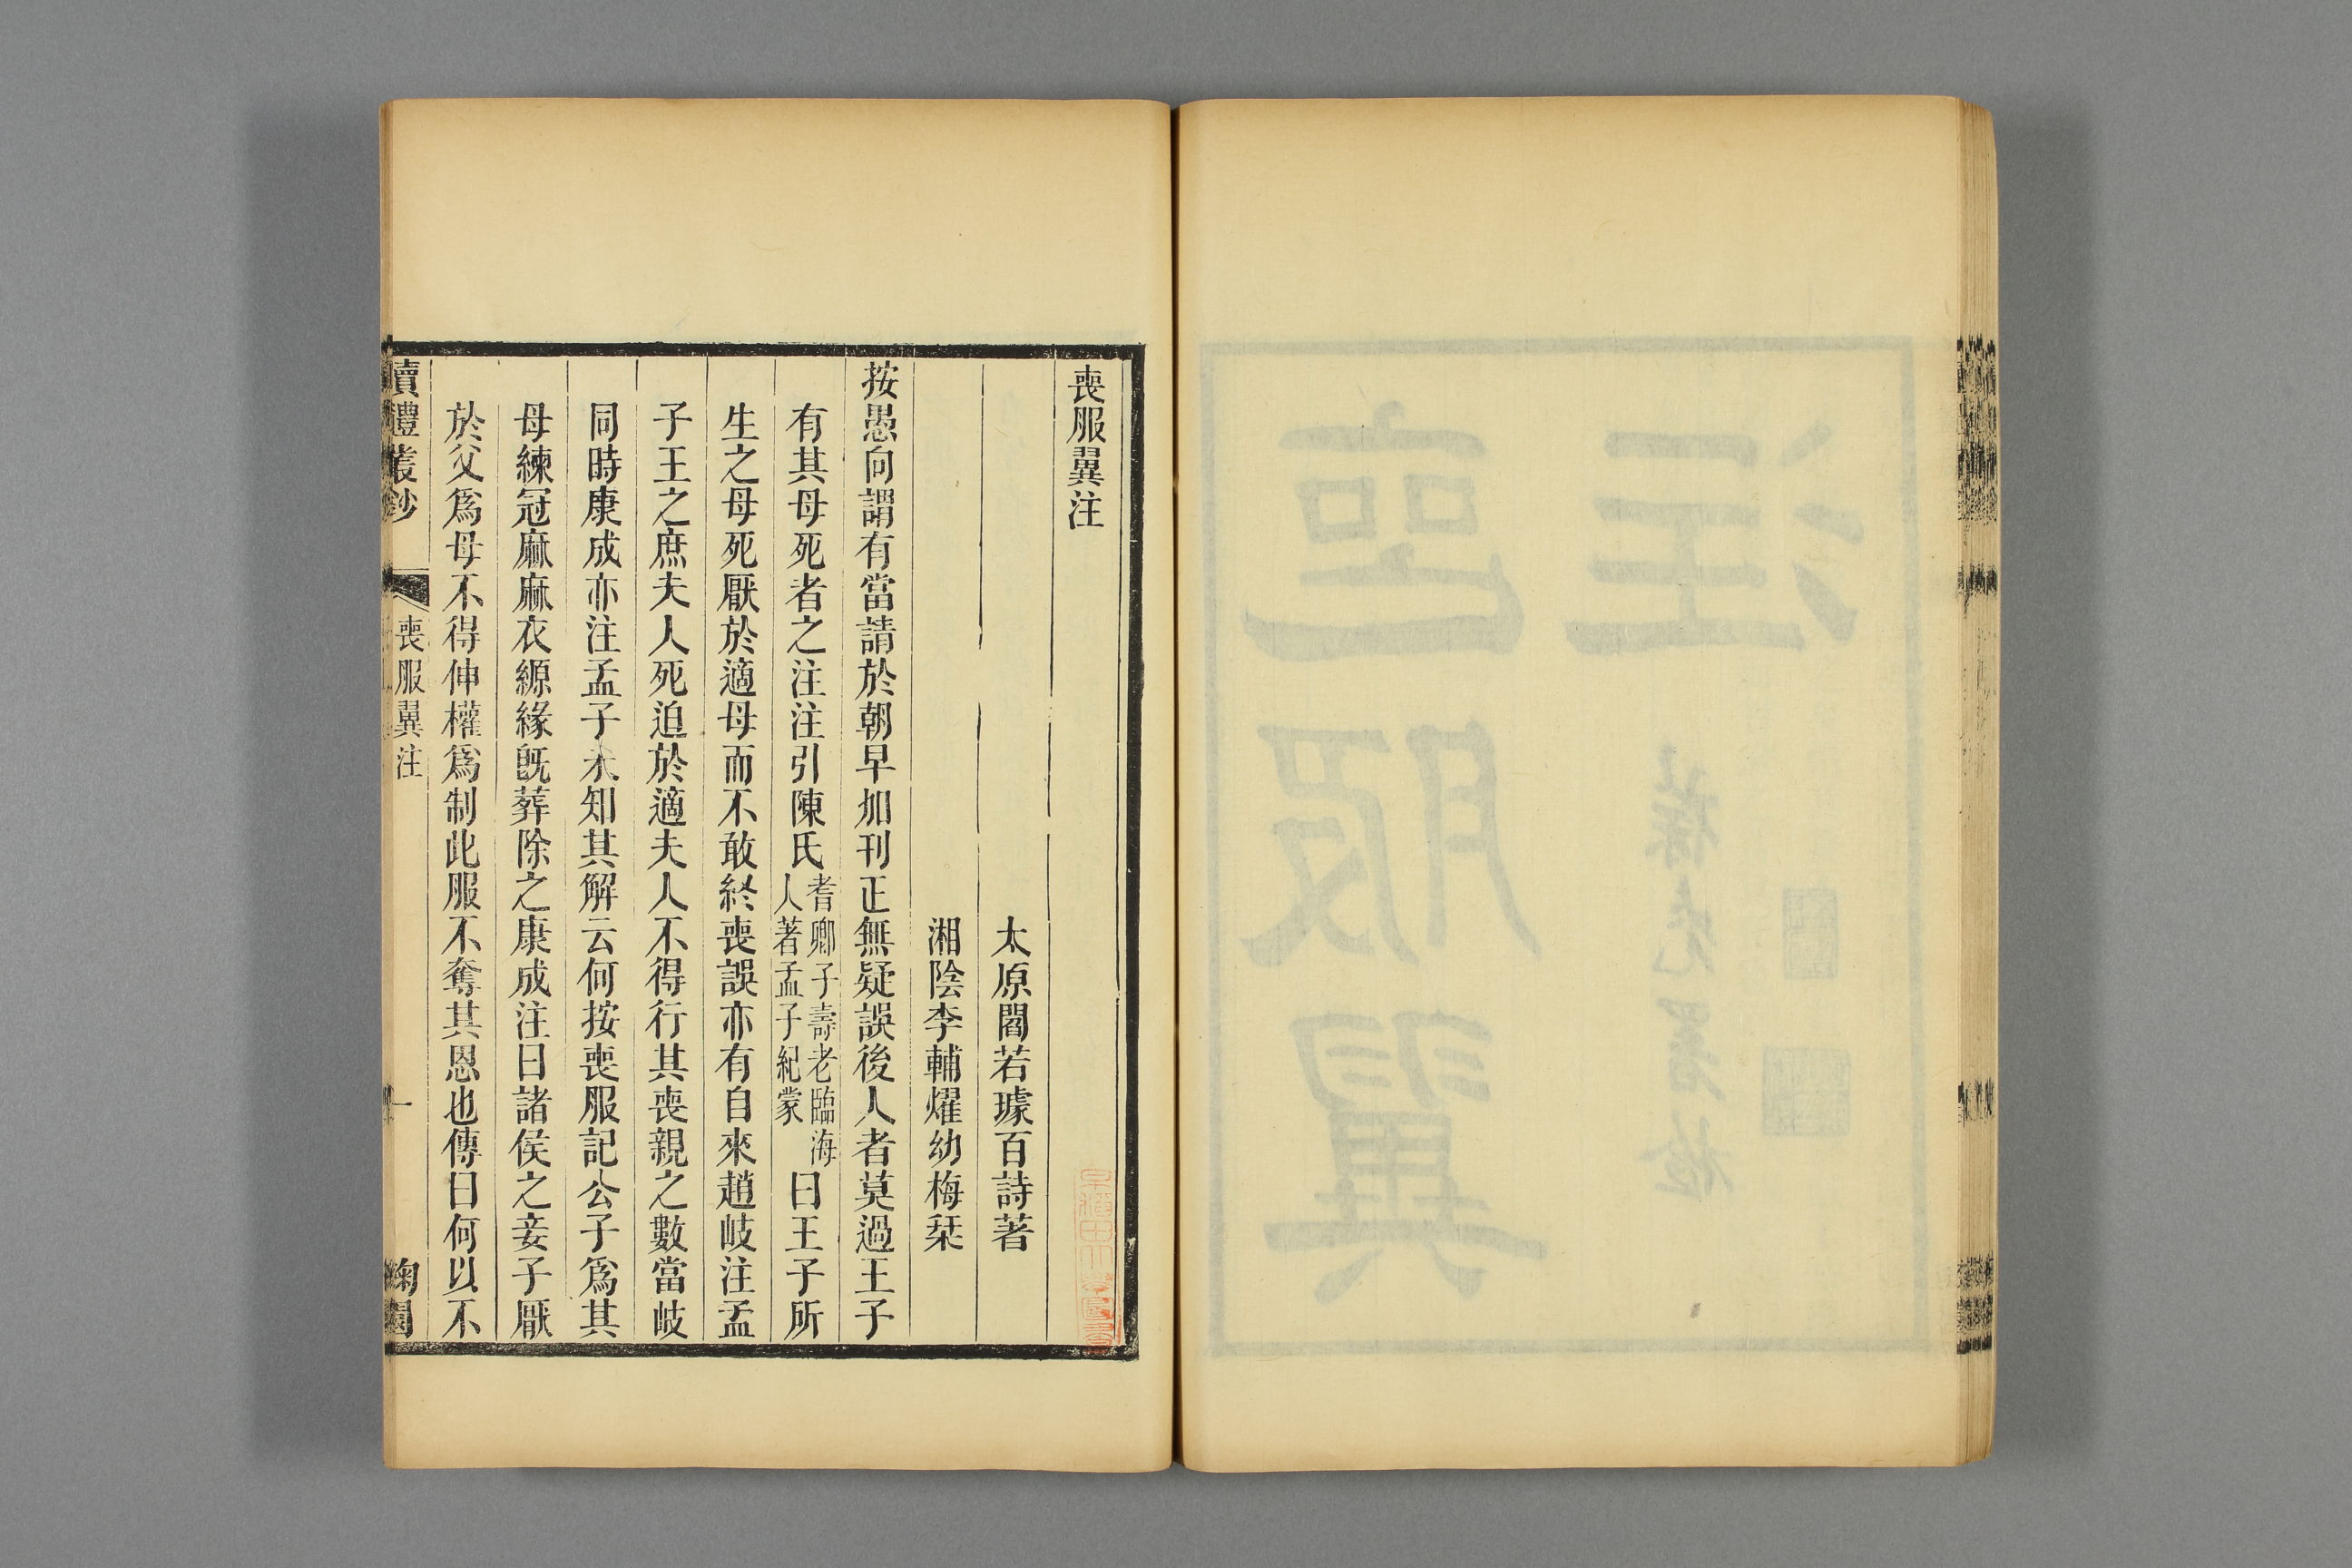 喪服翼注
太原閻若璩百詩著
湘陰李輔燿幼梅栞
按愚向謂有當請於朝早加刊正無疑誤後人者莫過王子
有其母死者之注注引陳氏耆卿子壽老臨海人著孟子紀蒙曰王子所
生之母死厭於適母而不敢終喪誤亦有自來趙岐注孟
子王之庶夫人死迫於適夫人不得行其喪親之數當岐
同時康成亦注孟子未知其解云何按喪服記公子爲其
母練冠麻麻衣縓緣旣葬除之康成注曰諸侯之妾子厭
於父爲母不得伸權爲制此服不奪其恩也傳曰何以不
讀禮叢鈔
喪服翼注
一
鞠園
早稻田大學圖書
注
喪服翼